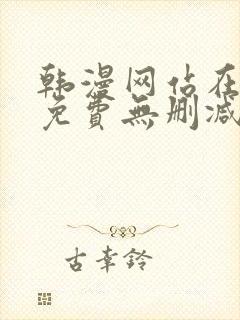 韩漫网站在
免費無删减
古幸铃